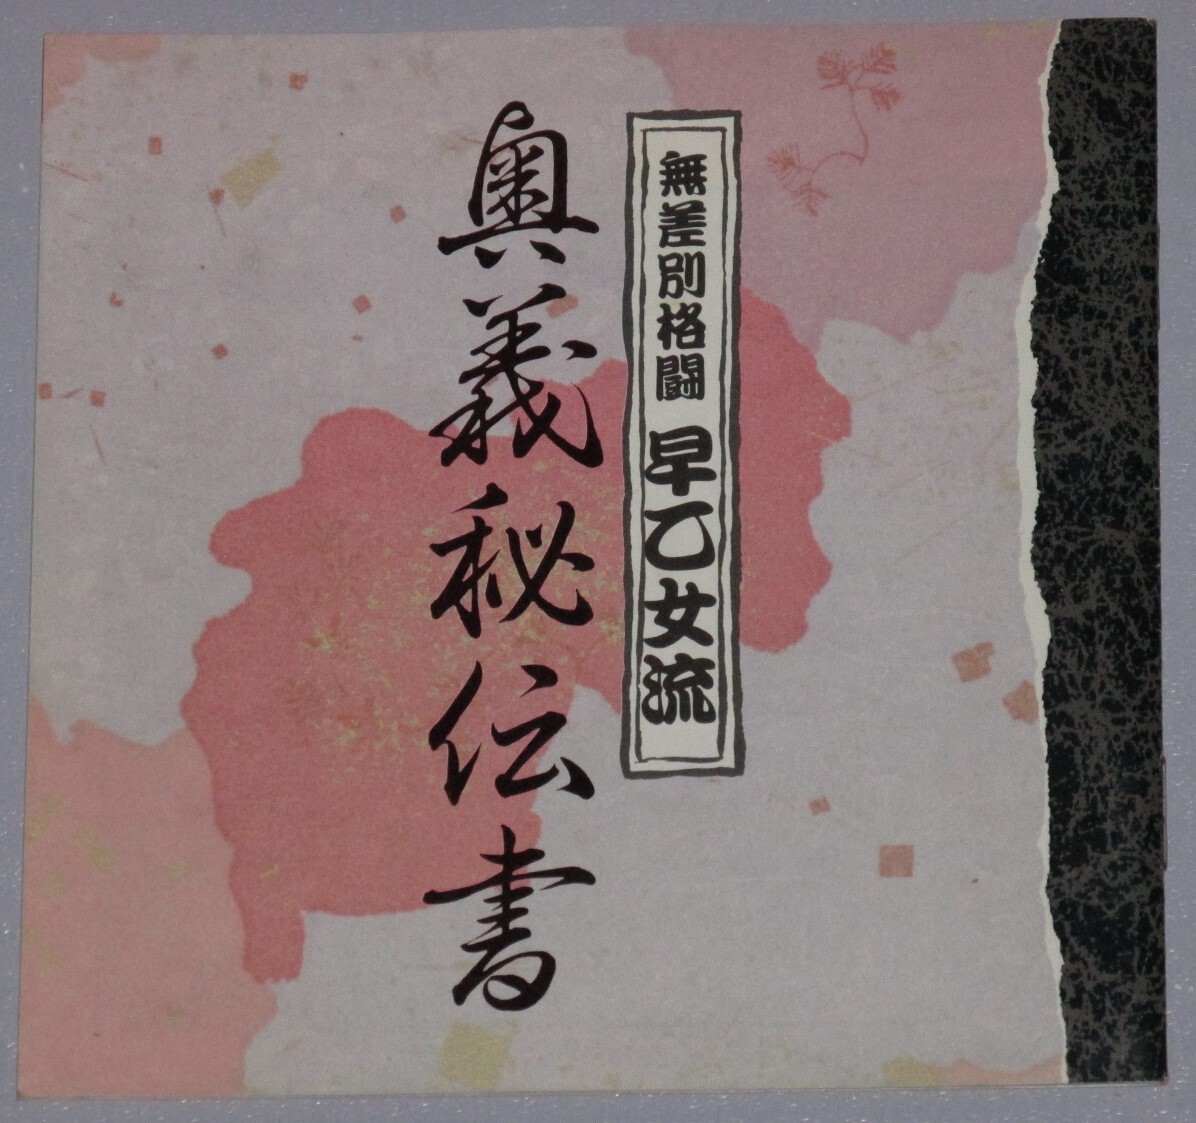 無差別格闘 早乙女流
奥義秘伝書